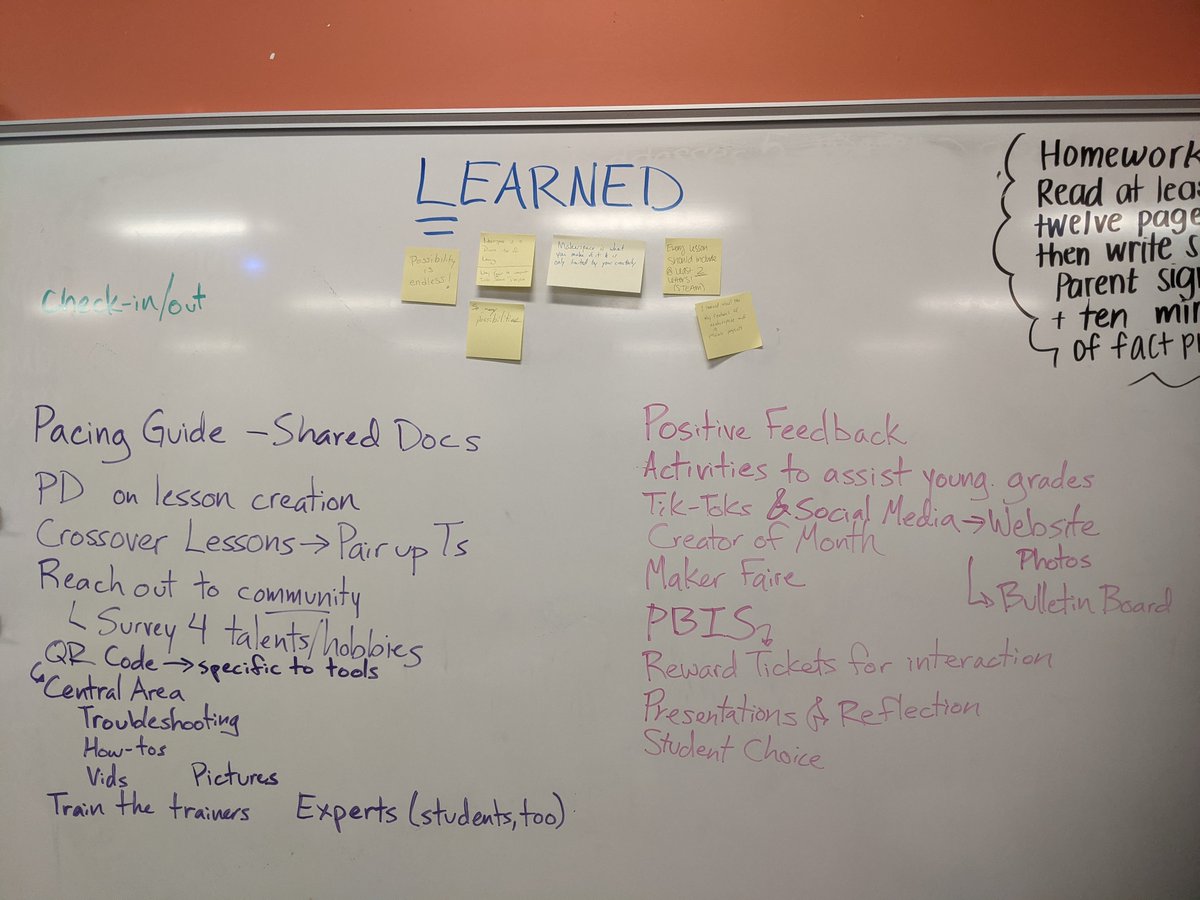 LEARNED
Possibility
is
endless!
Makerspace is what
you make of it & is
only limited by your creativity
Every lesson
should include
@ least 2
letters!
(STEAM)
So many
possibilities
check-in/out
Homework
Read at leas
twelve page
then write s
Parent sign
+ ten min
of fact pr
Pacing Guide - Shared Docs
PD on lesson creation
Crossover Lessons → Pair up Ts
Reach out to community
↳ Survey 4 talents/hobbies
QR Code → specific to tools
Central Area
Troubleshooting
How-tos
Vids Pictures
Train the trainers Experts (students, too)
Positive Feedback
Activities to assist young. grades
Tik-Toks & Social Media → Website
Creator of Month
Photos
Maker Faire
↳ Bulletin Board
PBIS
Reward Tickets for interaction
Presentations & Reflection
Student Choice